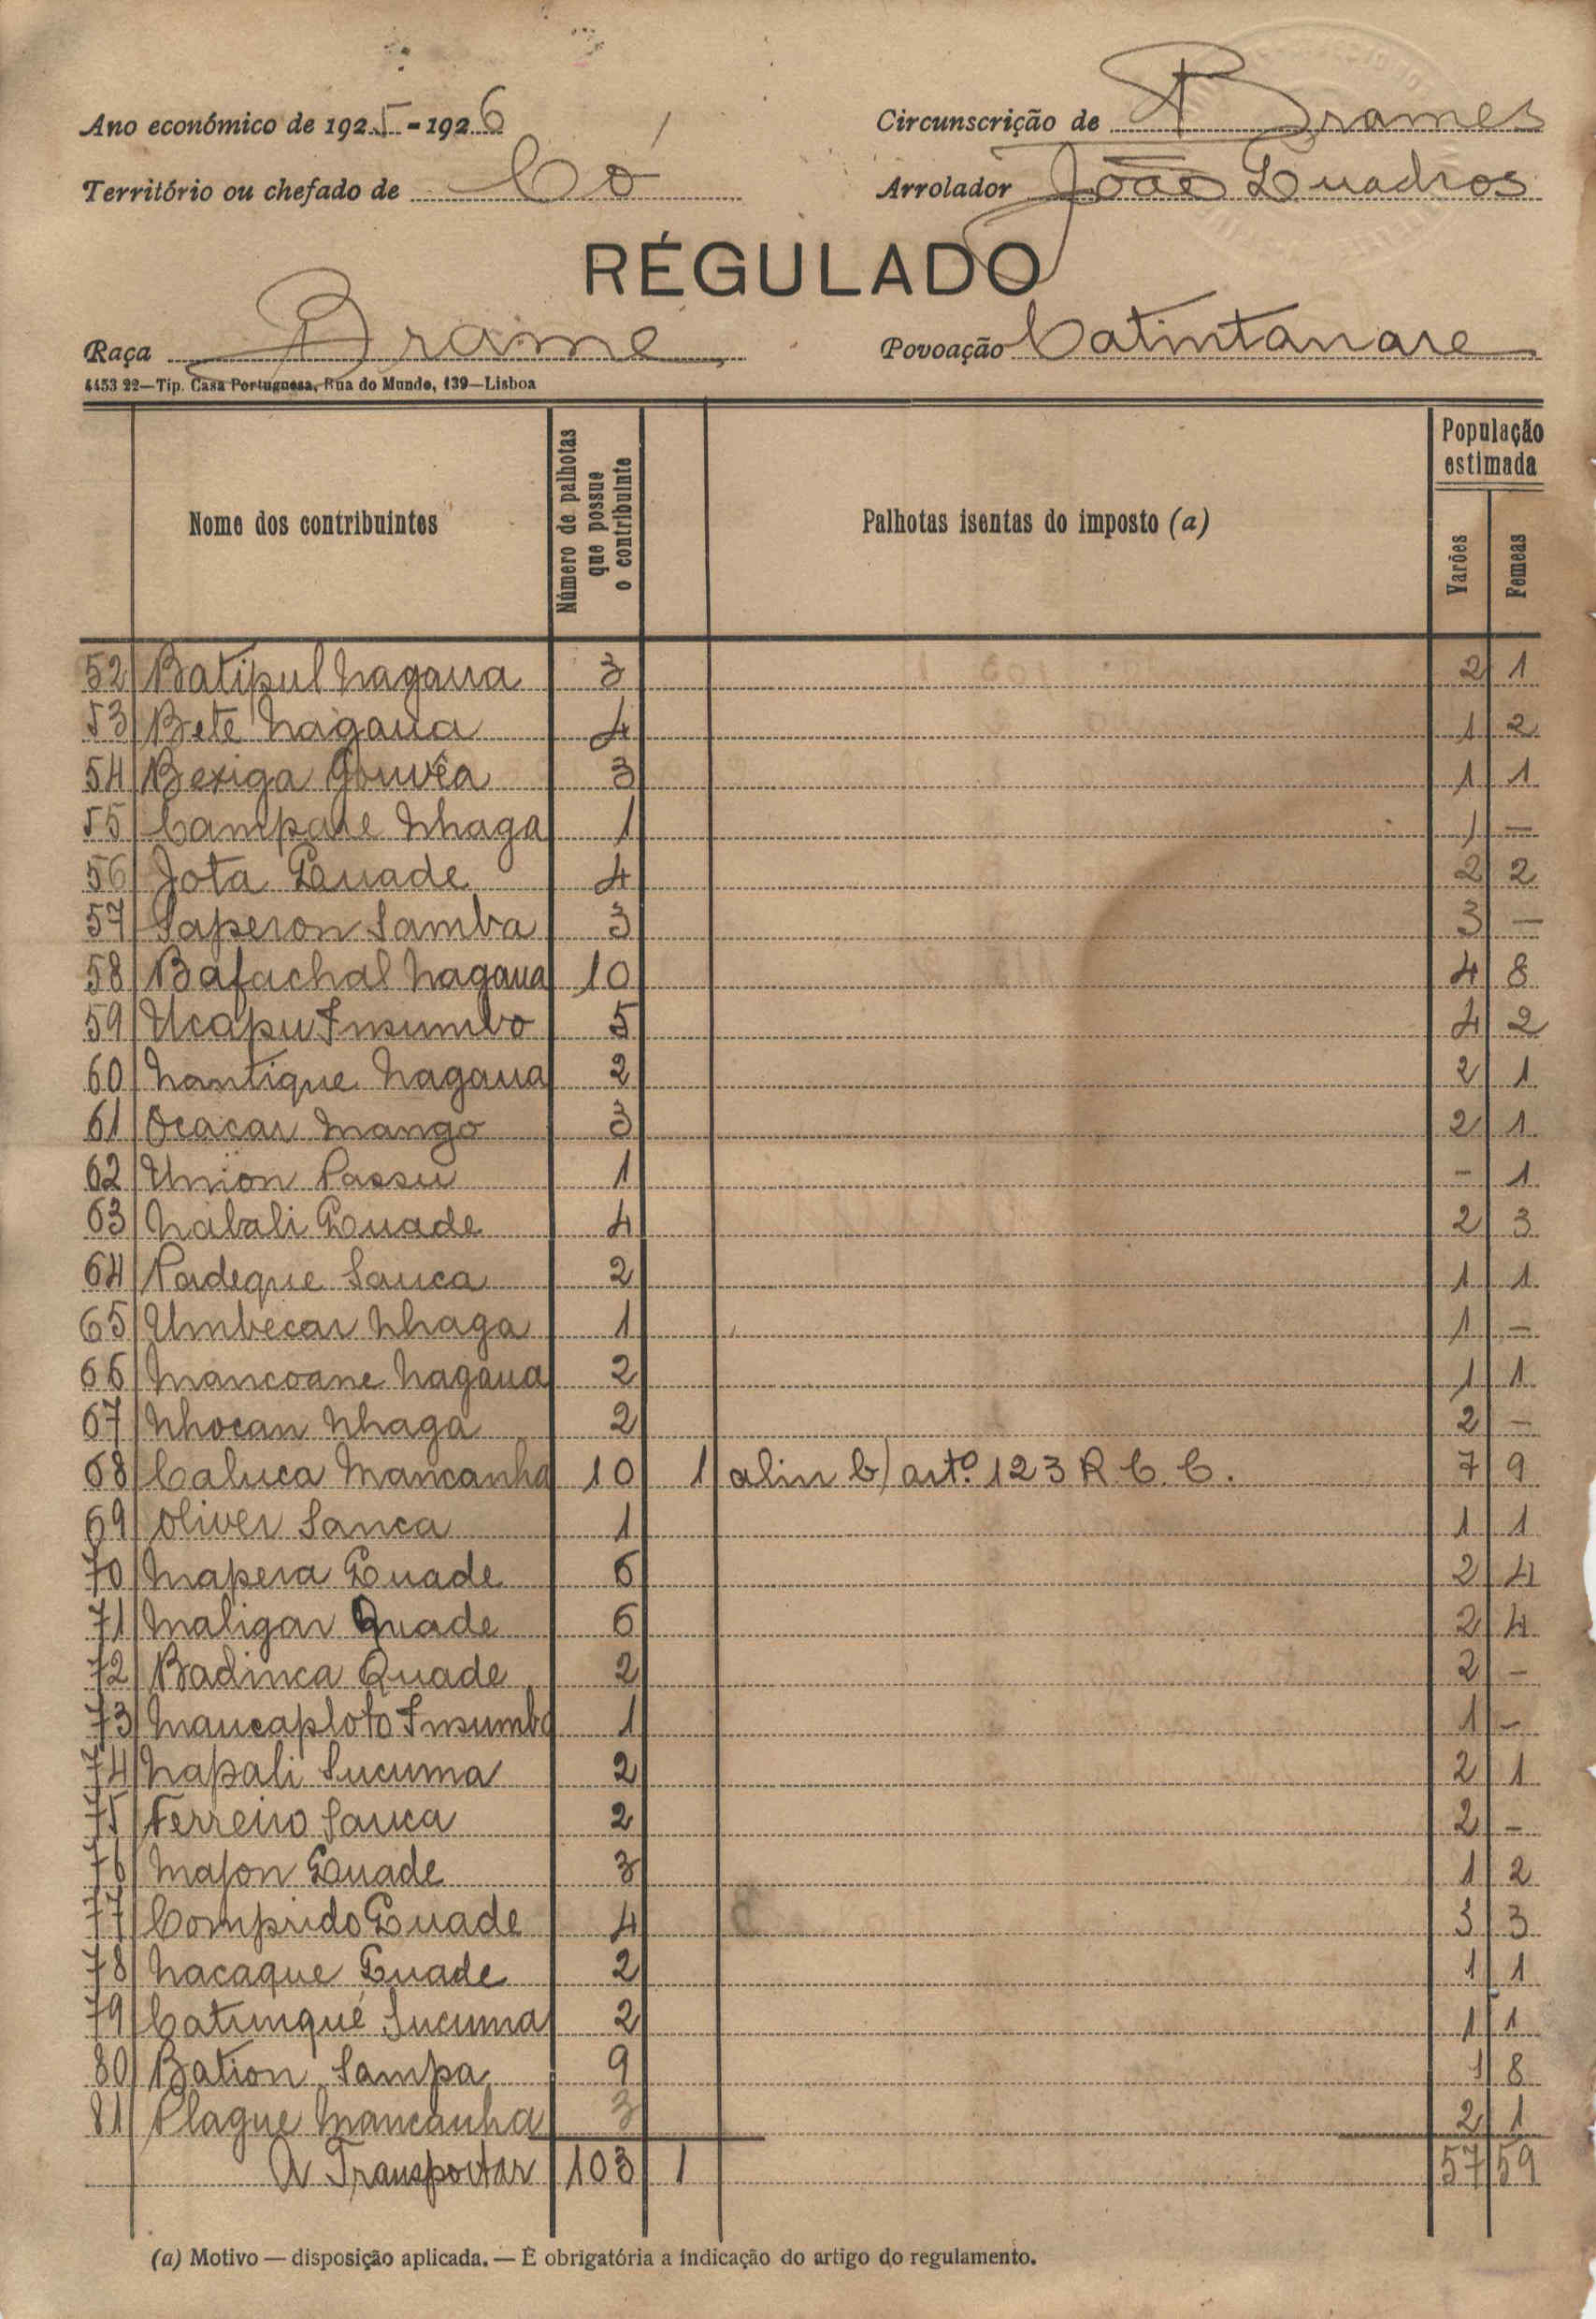 Ano económico de 1925-1926
Circunscrição de Brames
Território ou chefado de Có
Arrolador João Quadros
RÉGULADO
Raça Brame
Povoação Catintanare
4453 22—Tip. Casa Portuguesa, Rua do Mundo, 139—Lisboa
Nome dos contribuintes
Número de palhotas que possue o contribuinte
Palhotas isentas do imposto (a)
População estimada
Varões
Femeas
52 Batipul Nagaua 3 2 1
53 Bete Nagaua 4 1 2
54 Bexiga Gouvêa 3 1 1
55 Campane Nhaga 1 1 —
56 Jota Quade 4 2 2
57 Saperon Samba 3 3 —
58 Bafachal Nagaua 10 4 8
59 Ucapu Insumbo 5 4 2
60 Nantique Nagaua 2 2 1
61 Ocacar Mango 3 2 1
62 Union Passu 1 - 1
63 Nabali Quade 4 2 3
64 Padeque Sauca 2 1 1
65 Umbecar Nhaga 1 1 —
66 Mancoane Nagaua 2 1 1
67 Nhocan Nhaga 2 2 —
68 Caluca Mancanha 10 1 alin b) artº. 123 R. C. C. 7 9
69 Oliver Sanca 1 1 1
70 Napera Quade 6 2 4
71 Naligar Quade 6 2 4
72 Badinca Quade 2 2 —
73 Naucaploto Insumbo 1 1 —
74 Napali Sucuma 2 2 1
75 Ferreiro Sauca 2 2 —
76 Majon Quade 3 1 2
77 Comprido Quade 4 3 3
78 Nacaque Quade 2 1 1
79 Catunqué Sucuma 2 1 1
80 Bation Sampa 9 1 8
81 Plague Mancanha 3 2 1
A Transportar 103 1 57 59
(a) Motivo — disposição aplicada. — É obrigatória a indicação do artigo do regulamento.